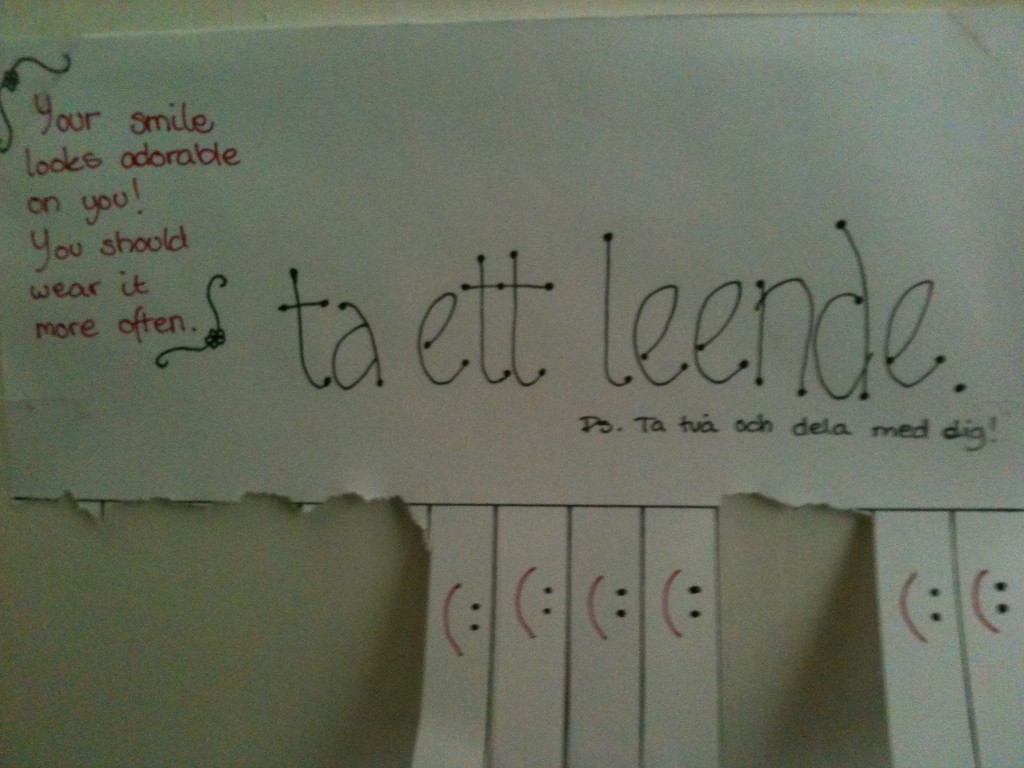 Your smile
looks adorable
on you!
You should
wear it
more often.
ta ett leende.
Ps. Ta två och dela med dig!
(: (: (: (: (: (: